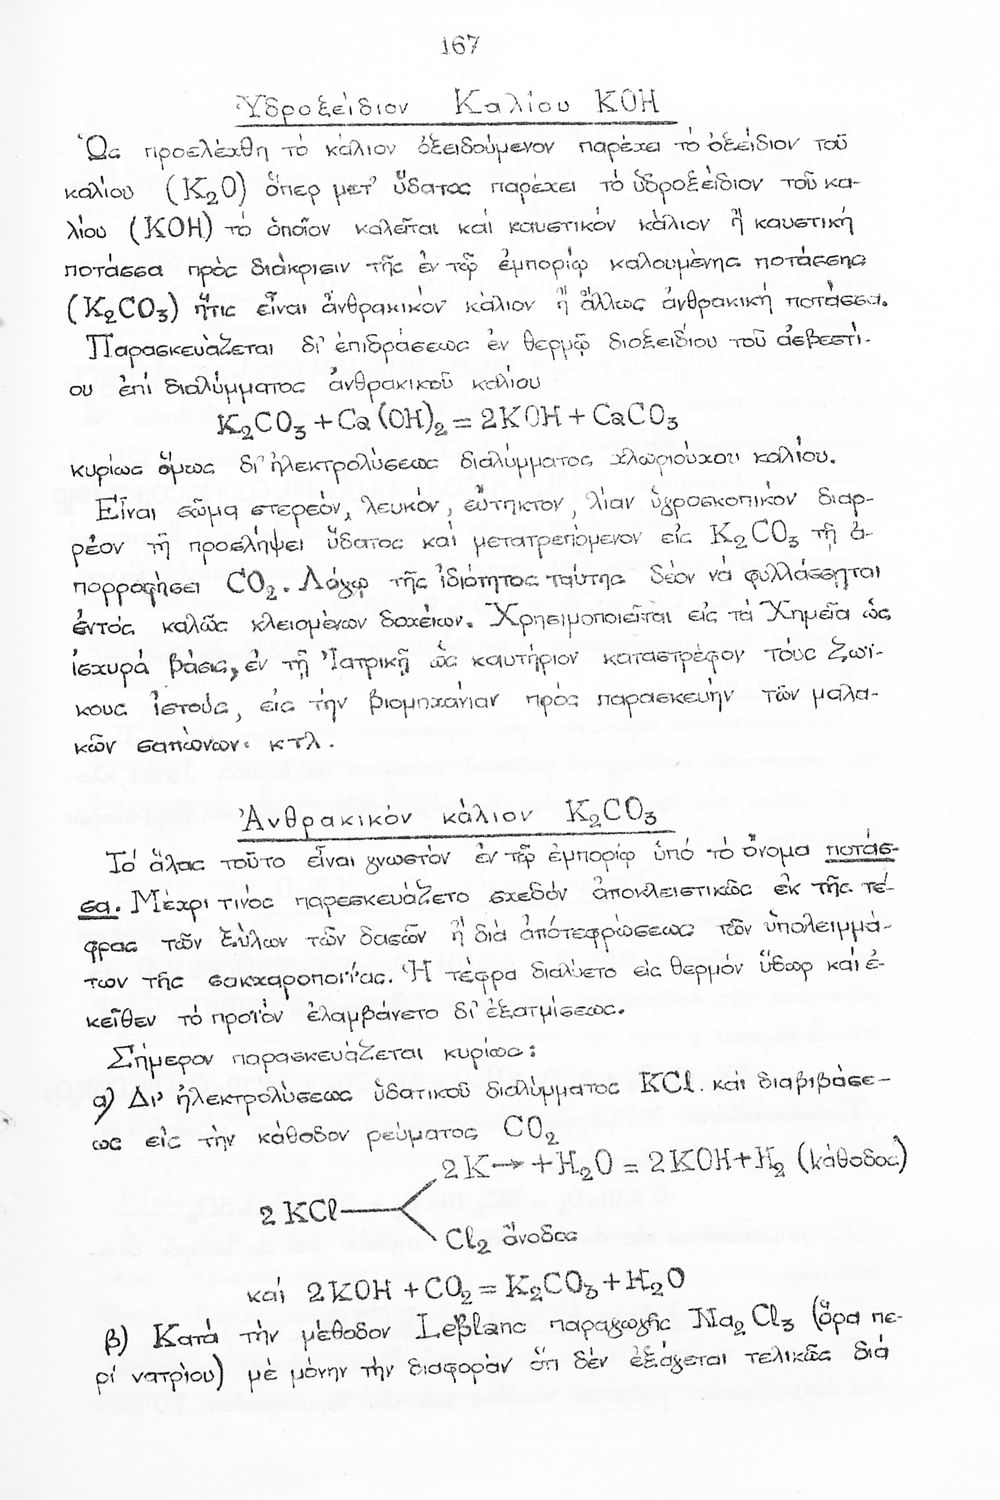 167
Ὑδροξείδιον Καλίου KOH
Ὡς προελέχθη τό κάλιον ὀξειδούμενον παρέχει τό ὀξείδιον τοῦ
καλίου (K₂O) ὅπερ μετ' ὕδατος παρέχει τό ὑδροξείδιον τοῦ κα-
λίου (KOH) τό ὁποῖον καλεῖται καί καυστικόν κάλιον ἤ καυστική
ποτάσσα πρός διάκρισιν τῆς ἐν τῷ ἐμπορίῳ καλουμένης ποτάσσης
(K₂CO₃) ἥτις εἶναι ἀνθρακικόν κάλιον ἤ ἄλλως ἀνθρακική ποτάσσα.
Παρασκευάζεται δι' ἐπιδράσεως ἐν θερμῷ διοξειδίου τοῦ ἀσβεστί-
ου ἐπί διαλύμματος ἀνθρακικοῦ καλίου
K₂CO₃ + Ca(OH)₂ = 2KOH + CaCO₃
κυρίως ὅμως δι' ἠλεκτρολύσεως διαλύμματος χλωριούχου καλίου.
Εἶναι σῶμα στερεόν, λευκόν, εὔτηκτον, λίαν ὑγροσκοπικόν διαρ-
ρέον τῇ προσλήψει ὕδατος καί μετατρεπόμενον εἰς K₂CO₃ τῇ ἀ-
πορροφήσει CO₂. Λόγῳ τῆς ἰδιότητος ταύτης δέον νά φυλλάσσηται
ἐντός καλῶς κλειομένων δοχείων. Χρησιμοποιεῖται εἰς τά Χημεῖα ὡς
ἰσχυρά βάσις, ἐν τῇ Ἰατρικῇ ὡς καυτήριον καταστρέφον τούς ζωϊ-
κους ἱστούς, εἰς τήν βιομηχανίαν πρός παρασκευήν τῶν μαλα-
κῶν σαπώνων κτλ.
Ἀνθρακικόν κάλιον K₂CO₃
Τό ἅλας τοῦτο εἶναι γνωστόν ἐν τῷ ἐμπορίῳ ὑπό τό ὄνομα ποτάσ-
σα. Μέχρι τινος παρεσκευάζετο σχεδόν ἀποκλειστικῶς ἐκ τῆς τέ-
φρας τῶν ξύλων τῶν δασῶν ἤ διά ἀποτεφρώσεως τῶν ὑπολειμμά-
των τῆς σακχαροποιΐας. Ἡ τέφρα διαλύετο εἰς θερμόν ὕδωρ καί ἐ-
κεῖθεν τό προϊόν ἐλαμβάνετο δι' ἐξατμίσεως.
Σήμερον παρασκευάζεται κυρίως:
α) Δι' ἠλεκτρολύσεως ὑδατικοῦ διαλύμματος KCl καί διαβιβάσε-
ως εἰς τήν κάθοδον ρεύματος CO₂
2K → + H₂O = 2KOH + H₂ (κάθοδος)
2KCl
Cl₂ ἄνοδος
καί 2KOH + CO₂ = K₂CO₃ + H₂O
β) Κατά τήν μέθοδον Leblanc παραγωγῆς Na₂Cl₃ (ὅρα πε-
ρί νατρίου) μέ μόνην τήν διαφοράν ὅτι δέν ἐξάγεται τελικῶς διά